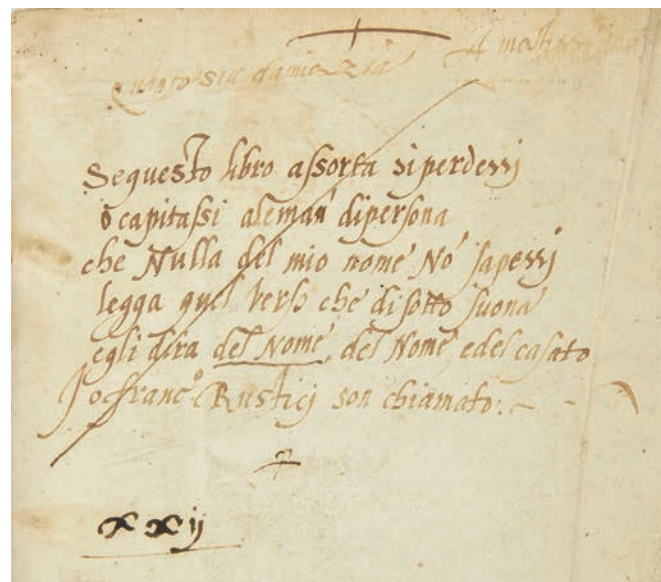 Quanto sia
Se questo libro assorta si perdessj
o capitassi aleman' dipersona
che Nulla del mio nome No' sapessj
legga quel verso che disotto suona
egli dira del Nome, del Nome, edel casato
Jo franc.º Rusticj son chiamato:~
xxij